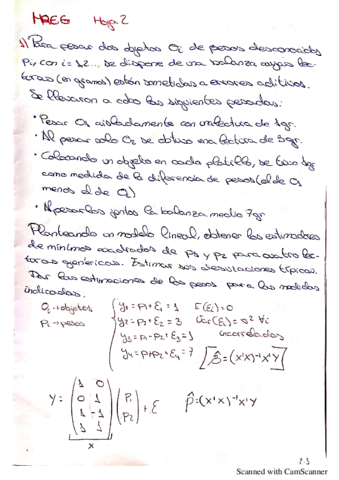 MREG Hoja 2
1) Para pesar dos objetos Oi de pesos desconocidos
Pi, con i = 1,2..., se dispone de una balanza cuyas lec-
turas (en gramos) están sometidas a errores aditivos.
Se llevaron a cabo las siguientes pesadas:
• Pesar O1 aisladamente con una lectura de 1gr.
• Al pesar solo O2 se obtuvo una lectura de 3gr.
• Colocando un objeto en cada platillo, se tuvo 1g
como medida de la diferencia de pesos (el de O1
menos el de O2)
• Al pesarlos juntos la balanza medio 7gr
Planteando un modelo lineal, obtener los estimadores
de mínimos cuadrados de p1 y p2 para cuatro lec-
turas genéricas. Estimar sus desviaciones típicas.
Dar las estimaciones de los pesos para las medidas
indicadas.
Oi → objetos
Pi → pesos
y1 = p1 + ε1 = 1 E(εi) = 0
y2 = p2 + ε2 = 3 Var(εi) = σ² ∀i
y3 = p1 - p2 + ε3 = 1 incorrelados
y4 = p1 + p2 + ε4 = 7 β̂ = (X'X)⁻¹X'Y
Y = (1 0
0 1
1 -1
1 1) (P1
P2) + ε p̂ = (X'X)⁻¹X'Y
X
2.1
Scanned with CamScanner